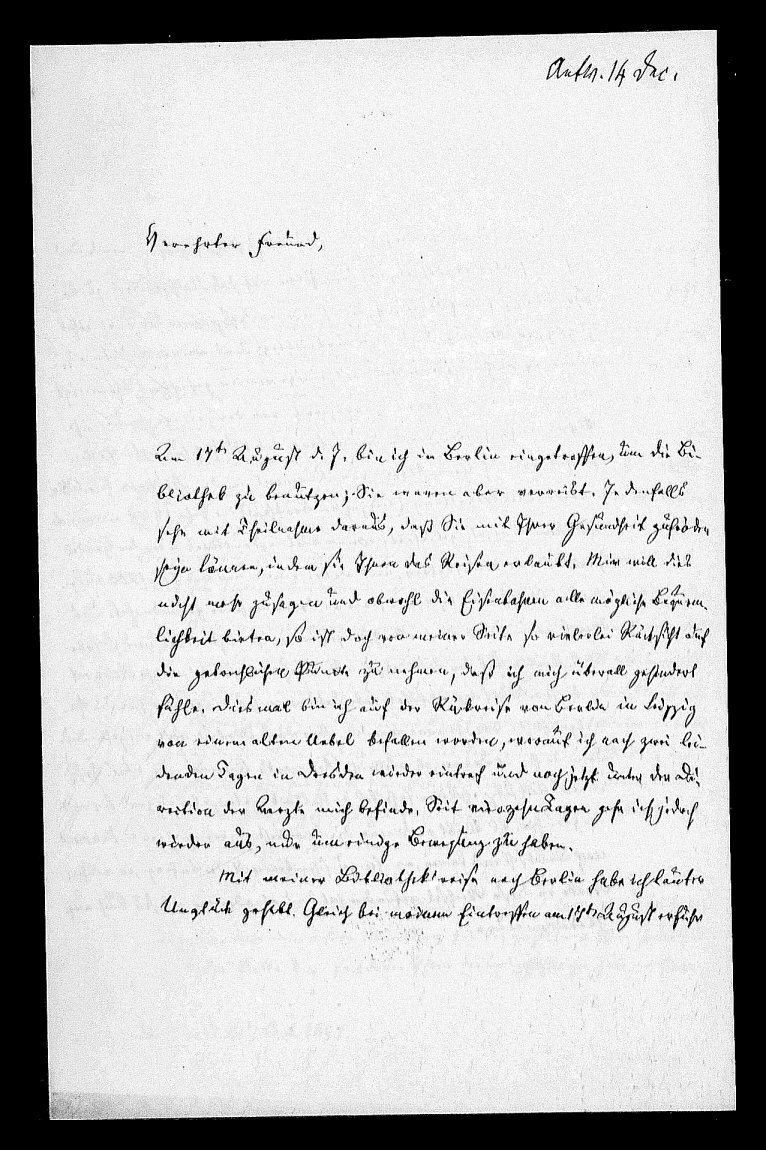 Antw. 14 Dec.
Verehrter Freund,
Am 17ten August d. J. bin ich in Berlin eingetroffen, um die Bi-
bliothek zu benutzen; Sie waren aber verreist. Jedenfalls
sehe mit Theilnahme daraus, daß Sie mit Ihrer Gesundheit zufrieden
seyn können, indem sie Ihnen das Reisen erlaubt. Mir will dies
nicht mehr zusagen und obwohl die Eisenbahnen alle mögliche Bequem-
lichkeit bieten, so ist doch von meiner Seite so vielerlei Rücksicht auf
die gebrechlichen zu nehmen, daß ich mich überall gehindert
fühle. Diesmal bin ich auf der Rückreise von Berlin in Leipzig
von einem alten Uebel befallen worden, worauf ich nach zwei lei-
denden Tagen in Dresden wieder eintraf und noch jetzt unter der Di-
rection der Aerzte mich befinde. Seit vierzehn Tagen gehe ich jedoch
wieder aus, nur um einige Bewegung zu haben.
Mit meiner Bibliothekreise nach Berlin habe ich lauter
Unglück gehabt. Gleich bei meinem Eintreffen am August erfuhr